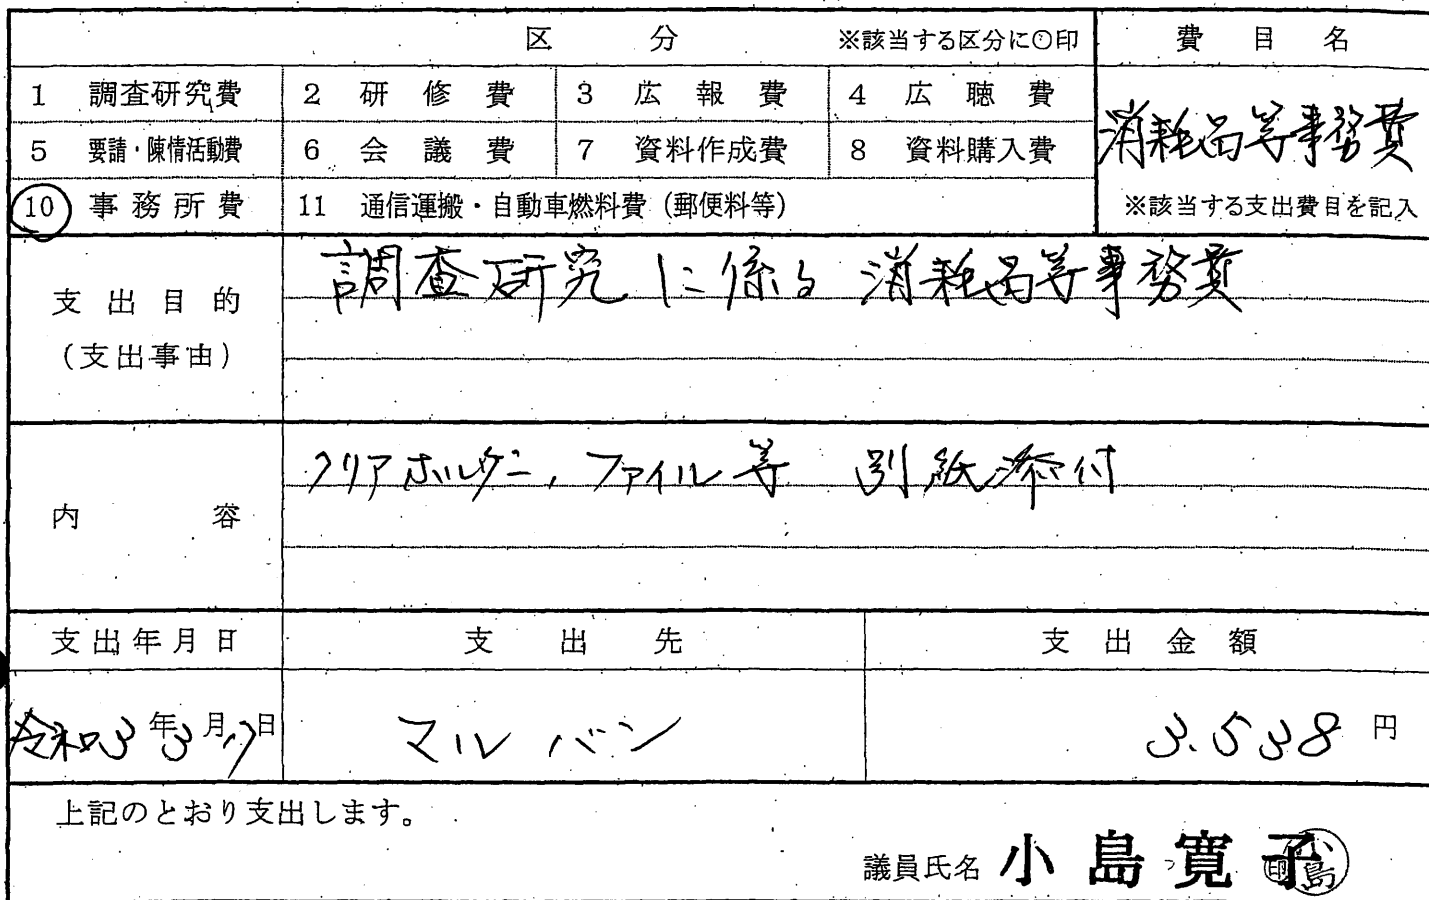 区分 ※該当する区分に○印 費目名
1 調査研究費 2 研修費 3 広報費 4 広聴費
消耗品等事務費
5 要請・陳情活動費 6 会議費 7 資料作成費 8 資料購入費
10 事務所費 11 通信運搬・自動車燃料費(郵便料等) ※該当する支出費目を記入
調査研究に係る消耗品等事務費
支出目的
(支出事由)
クリアホルダー、ファイル等 別紙添付
内容
支出年月日 支出先 支出金額
令和3年3月17日 マルバン 3.538円
上記のとおり支出します。
議員氏名 小島寛子 印 小島